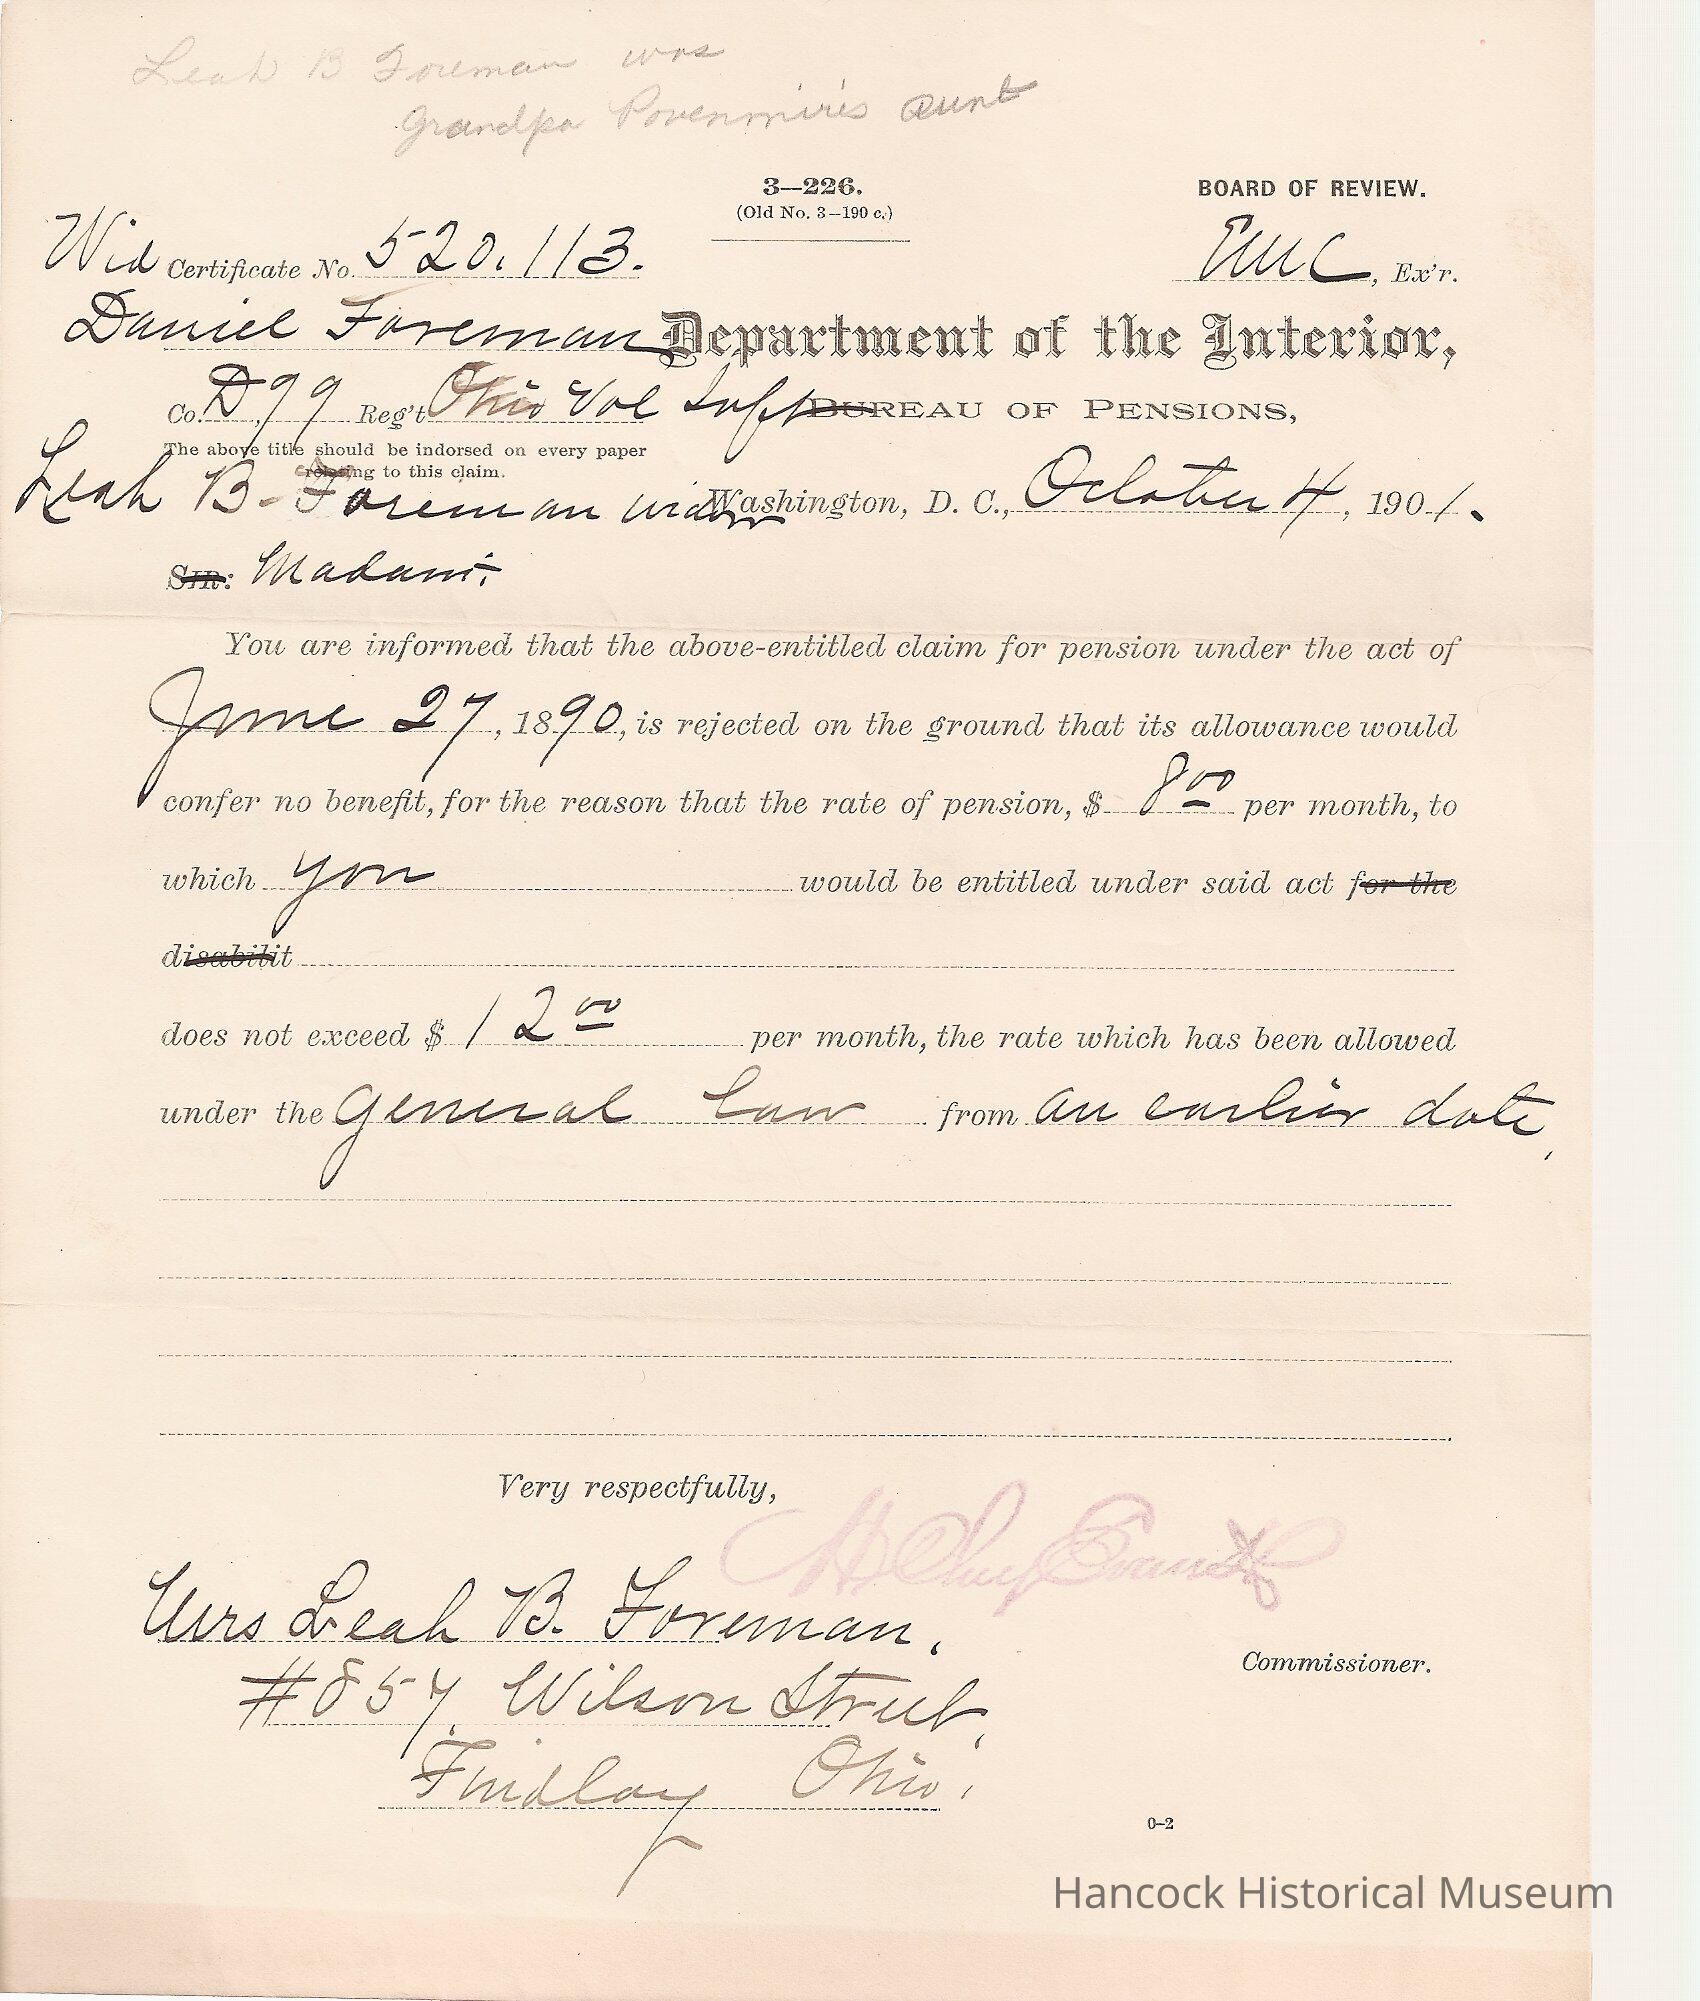 Leah B Foreman was
Grandpa Povenmire's aunt
3—226.
(Old No. 3—190 c.)
BOARD OF REVIEW.
Wid Certificate No. 520.113.
EMC, Ex'r.
Daniel Foreman
Department of the Interior,
Co. D, 99 Reg't Ohio Vol Inft
BUREAU OF PENSIONS,
The above title should be indorsed on every paper
relating to this claim.
Leah B. Foreman widow
Washington, D. C., October 4, 1901.
SIR: Madam:
You are informed that the above-entitled claim for pension under the act of
June 27, 1890, is rejected on the ground that its allowance would
confer no benefit, for the reason that the rate of pension, $ 8 00 per month, to
which you would be entitled under said act for the
disabilit
does not exceed $ 12 00 per month, the rate which has been allowed
under the General Law from an earlier date,
Very respectfully,
H Clay Evans
Mrs Leah B. Foreman,
Commissioner.
#857, Wilson Street,
Findlay Ohio.
0—2
Hancock Historical Museum